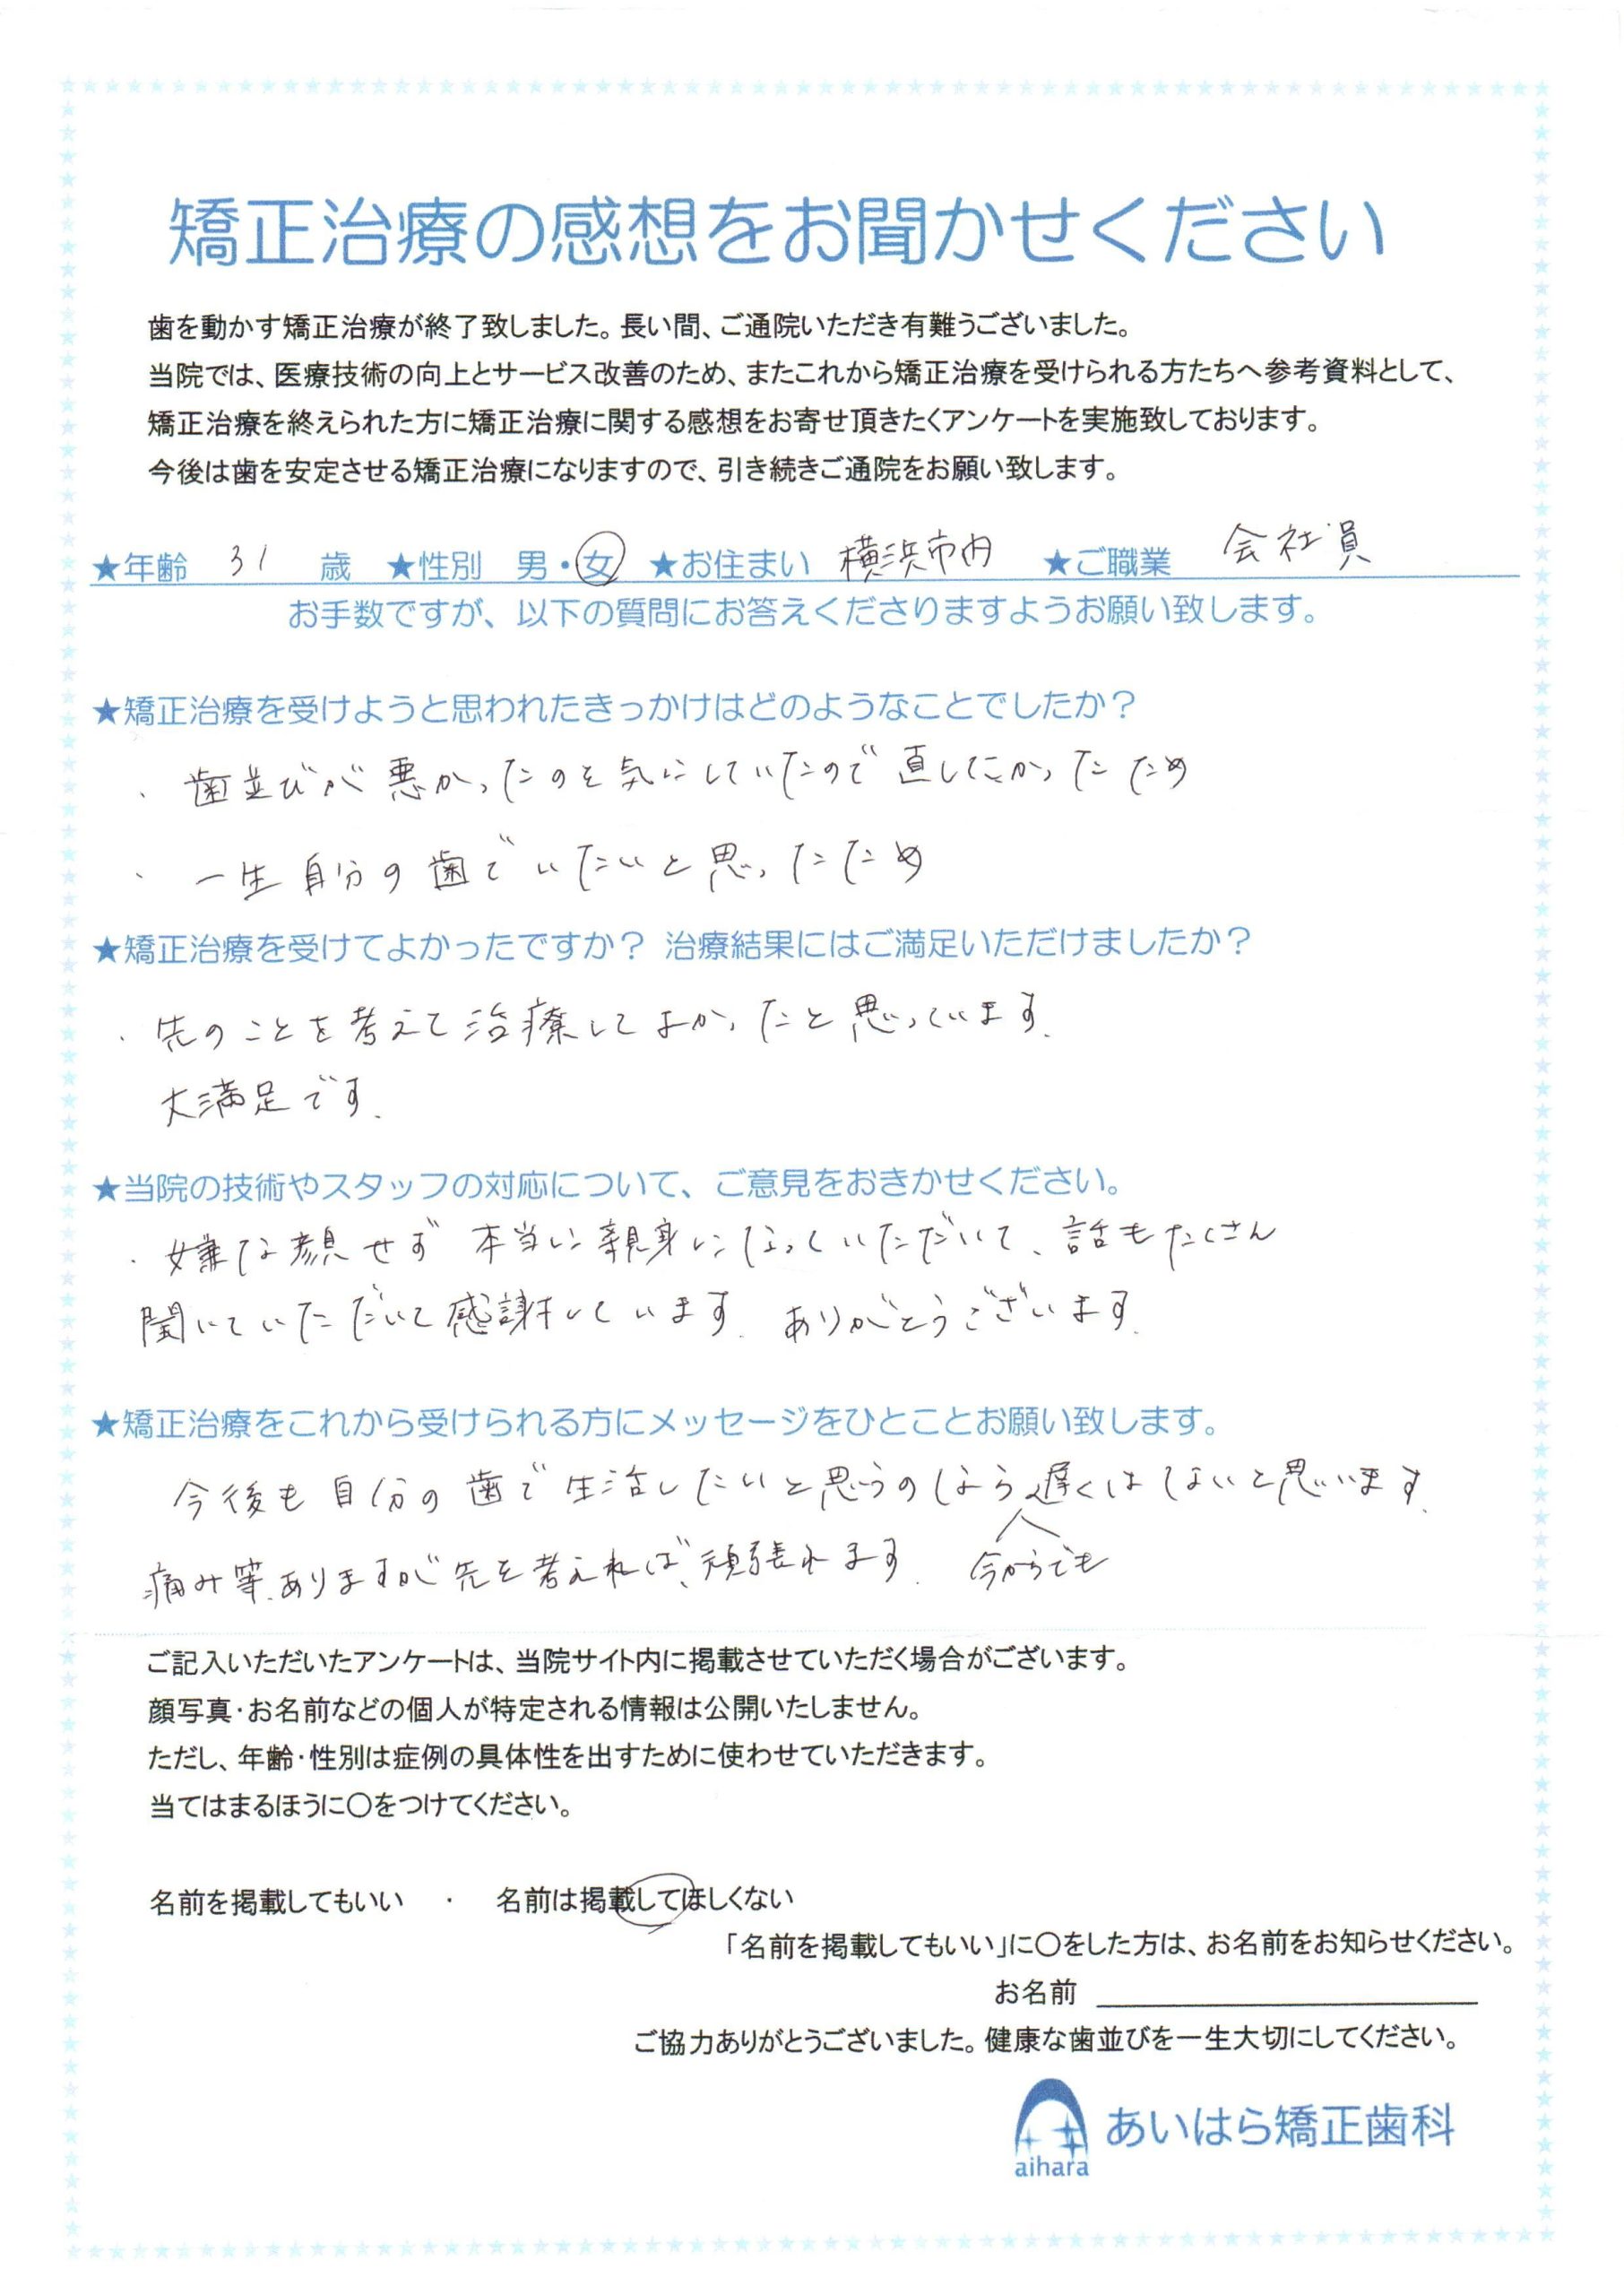 矯正治療の感想をお聞かせください
歯を動かす矯正治療が終了致しました。長い間、ご通院いただき有難うございました。
当院では、医療技術の向上とサービス改善のため、またこれから矯正治療を受けられる方たちへ参考資料として、
矯正治療を終えられた方に矯正治療に関する感想をお寄せ頂きたくアンケートを実施致しております。
今後は歯を安定させる矯正治療になりますので、引き続きご通院をお願い致します。
★年齢 31 歳 ★性別 男・女 ★お住まい 横浜市内 ★ご職業 会社員
お手数ですが、以下の質問にお答えくださりますようお願い致します。
★矯正治療を受けようと思われたきっかけはどのようなことでしたか？
・歯並びが悪かったのを気にしていたので直したかったため
・一生自分の歯でいたいと思ったため
★矯正治療を受けてよかったですか？ 治療結果にはご満足いただけましたか？
・先のことを考えて治療してよかったと思っています。
大満足です。
★当院の技術やスタッフの対応について、ご意見をおきかせください。
・嫌な顔せず本当に親身になっていただいて、話もたくさん
聞いていただいて感謝しています。ありがとうございます。
★矯正治療をこれから受けられる方にメッセージをひとことお願い致します。
今後も自分の歯で生活したいと思うのなら遅くはないと思います。
痛み等、ありますが先を考えれば、頑張れます。 今からでも
ご記入いただいたアンケートは、当院サイト内に掲載させていただく場合がございます。
顔写真・お名前などの個人が特定される情報は公開いたしません。
ただし、年齢・性別は症例の具体性を出すために使わせていただきます。
当てはまるほうに〇をつけてください。
名前を掲載してもいい ・ 名前は掲載してほしくない
「名前を掲載してもいい」に〇をした方は、お名前をお知らせください。
お名前
ご協力ありがとうございました。健康な歯並びを一生大切にしてください。
あいはら矯正歯科
aihara